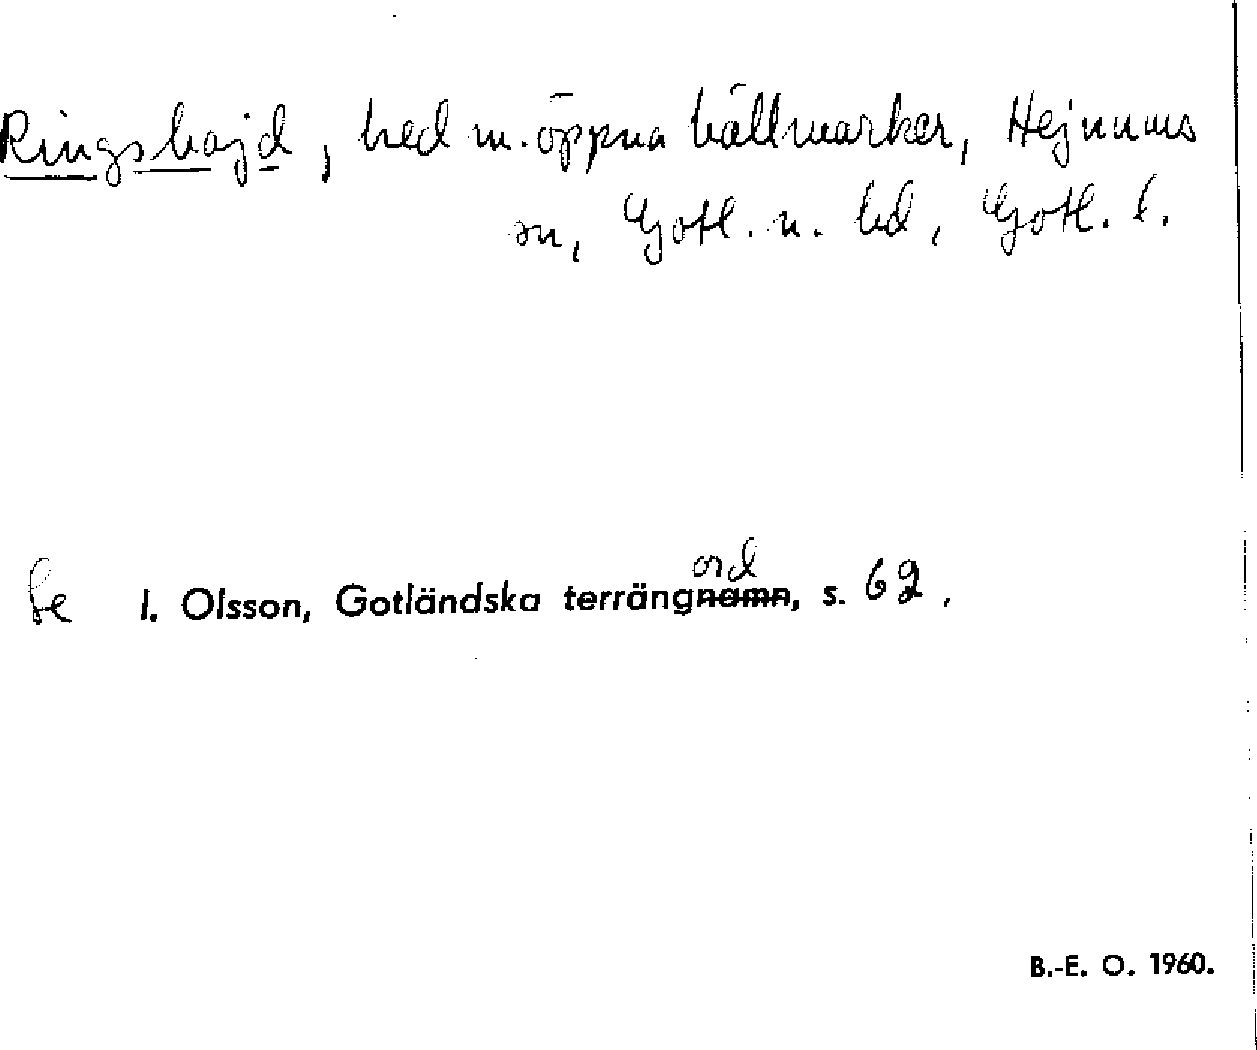 Ringshajd, hed m. öppna hällmarker, Hejnums
sn, Gotl. n. hd, Gotl. l.
Se I. Olsson, Gotländska terräng~~namn~~ord, s. 62.
B.-E. O. 1960.